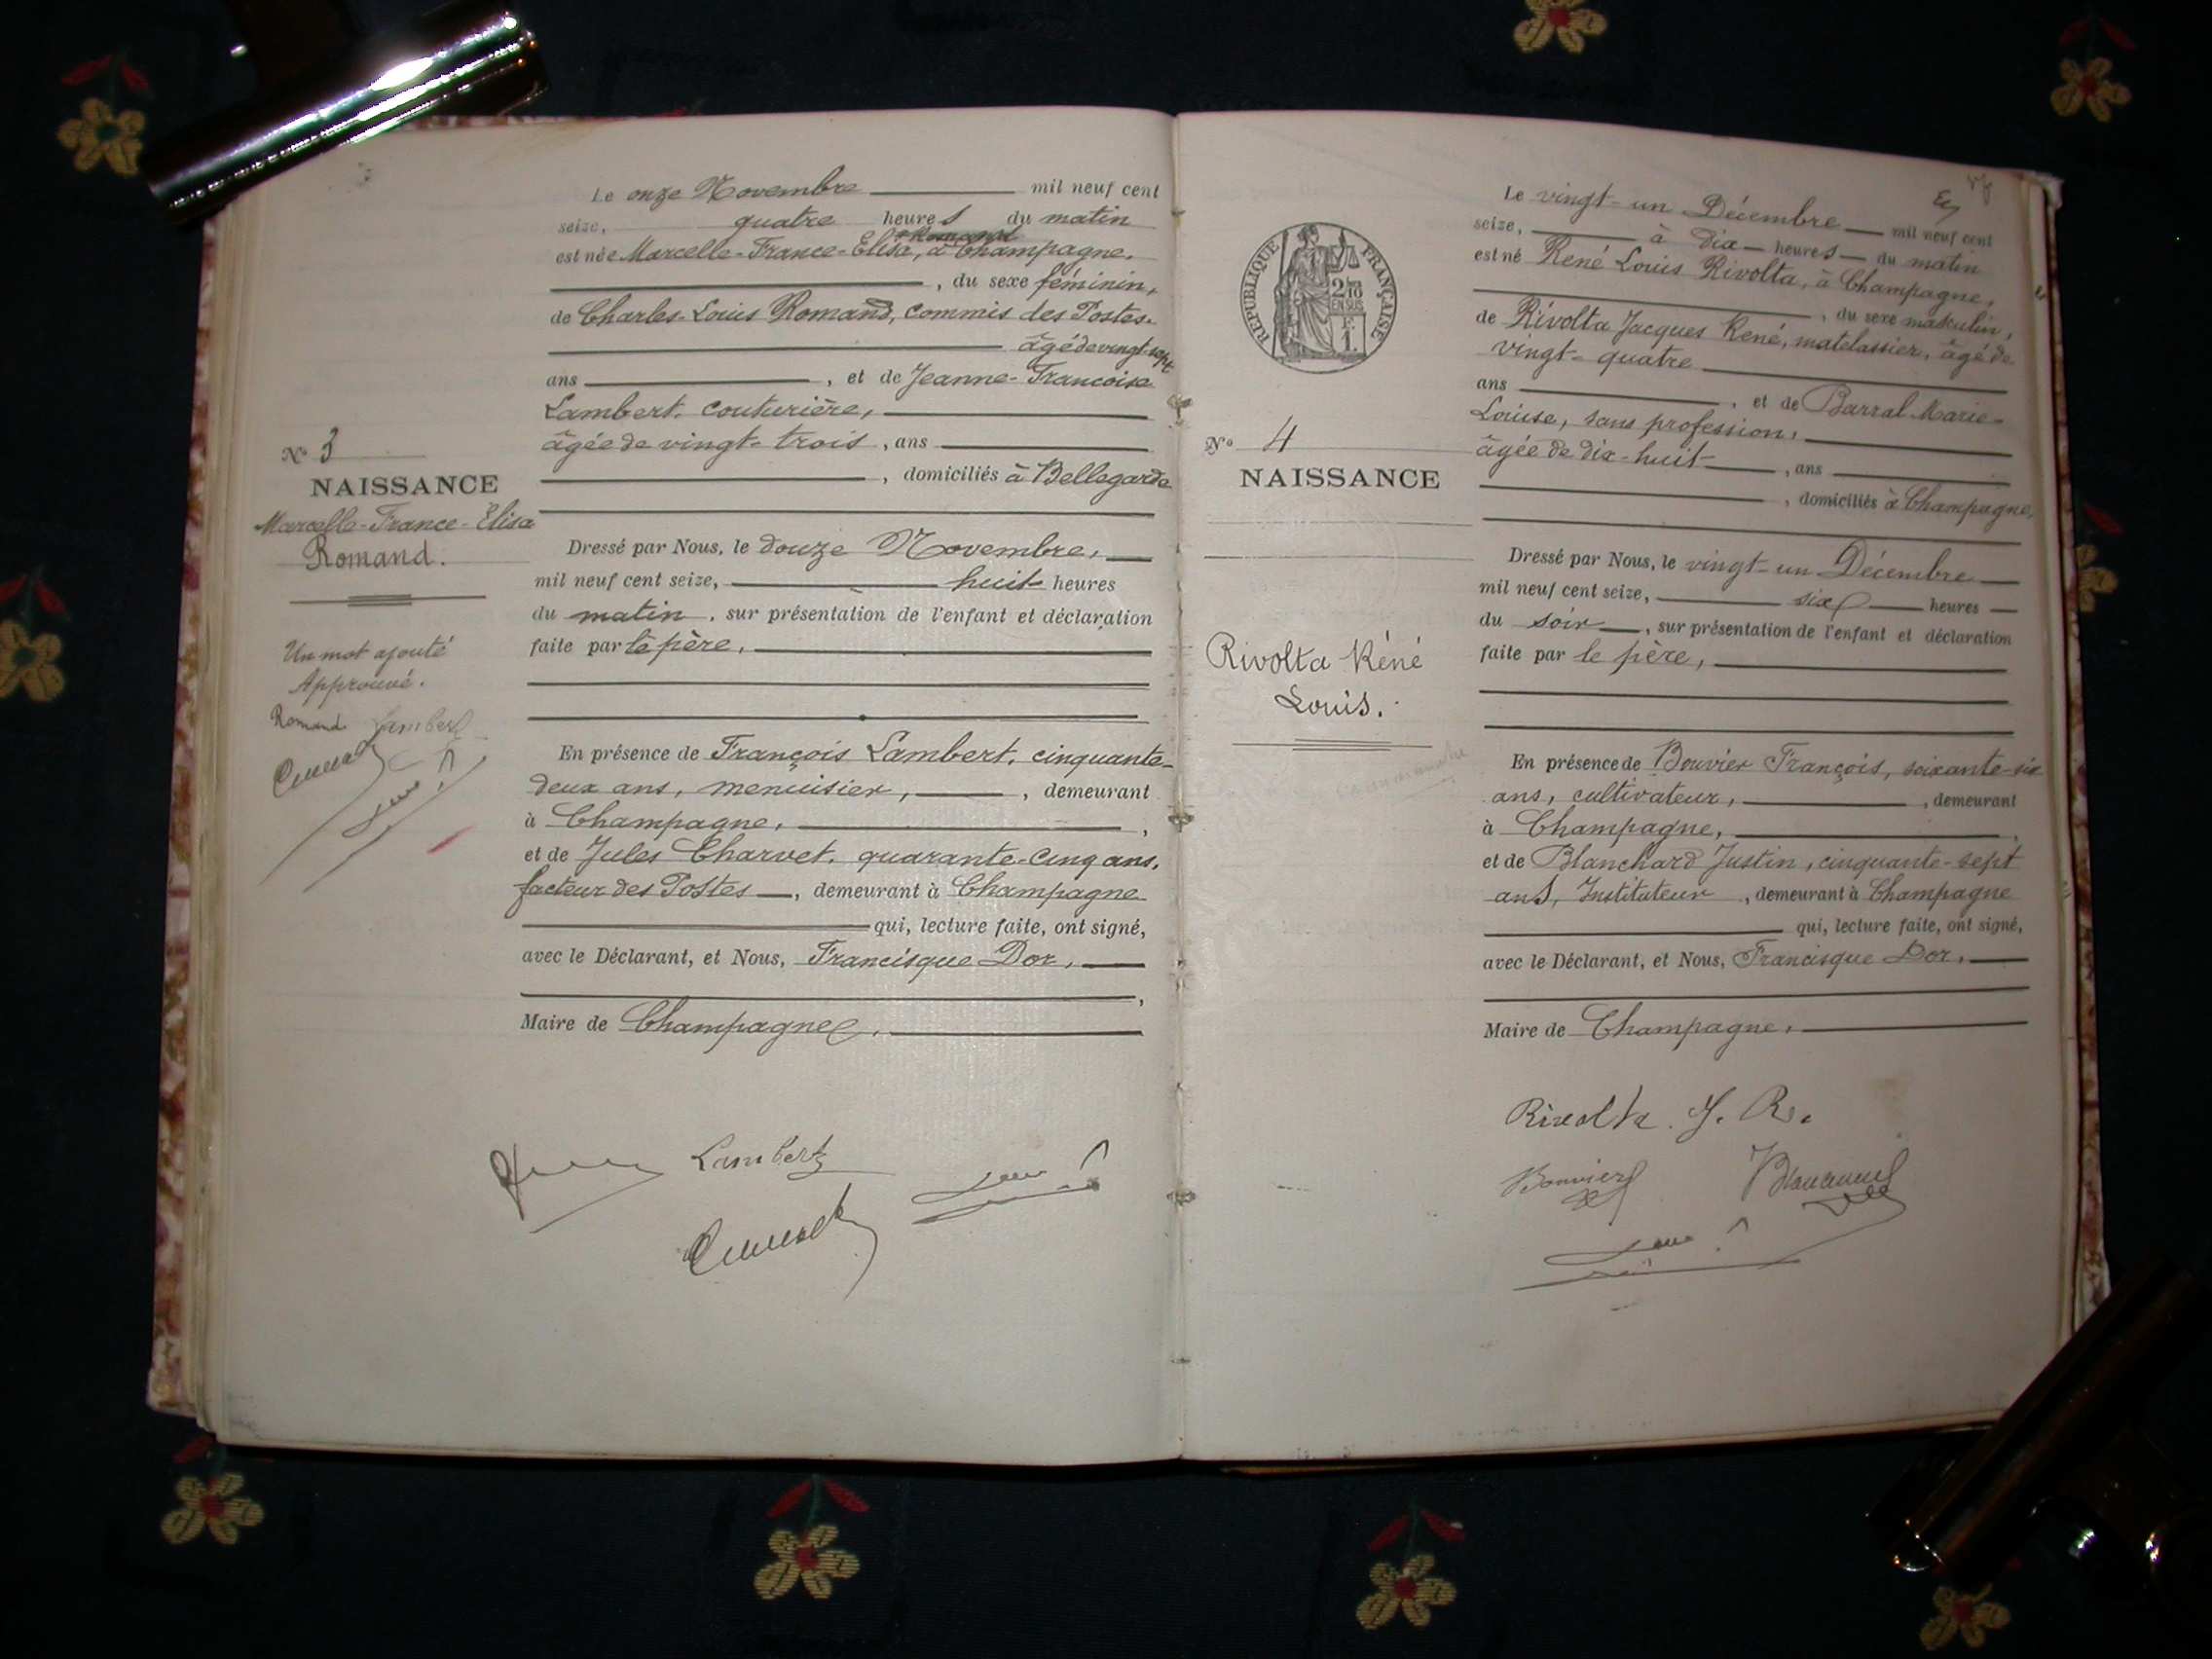 Le onze Novembre mil neuf cent
seize, quatre heures du matin
Romand
est née Marcelle-France-Elisa, à Champagne.
, du sexe féminin,
de Charles-Louis Romand, commis des Postes.
âgé de vingt-sept
ans , et de Jeanne-Francoise
Lambert, couturière,
âgée de vingt-trois , ans
, domiciliés à Bellegarde
Dressé par Nous, le douze Novembre,
mil neuf cent seize, huit heures
du matin , sur présentation de l'enfant et déclaration
faite par le père,
En présence de François Lambert, cinquante-
deux ans, menuisier, , demeurant
à Champagne, ,
et de Jules Charvet, quarante-cinq ans,
facteur des Postes , demeurant à Champagne
qui, lecture faite, ont signé,
avec le Déclarant, et Nous, Francisque Dor,
,
Maire de Champagne,
Lambert
N° 3
NAISSANCE
Marcelle-France-Elisa
Romand.
Un mot ajouté
Approuvé.
Romand Lambert
RÉPUBLIQUE FRANÇAISE
2/10
EN SUS
1.
N° 4
NAISSANCE
Rivolta Réné
Louis.
Le vingt-un Décembre mil neuf cent
seize, à dix heures du matin
est né René Louis Rivolta, à Champagne,
, du sexe masculin,
de Rivolta Jacques René, matelassier, âgé de
vingt-quatre
ans , et de Barral Marie-
Louise, sans profession,
âgée de dix-huit , ans
, domiciliés à Champagne,
Dressé par Nous, le vingt-un Décembre
mil neuf cent seize, six heures
du soir , sur présentation de l'enfant et déclaration
faite par le père,
En présence de Bouvier François, soixante-six
ans, cultivateur, , demeurant
à Champagne, ,
et de Blanchard Justin, cinquante-sept
ans, Instituteur , demeurant à Champagne
qui, lecture faite, ont signé,
avec le Déclarant, et Nous, Francisque Dor,
Maire de Champagne,
Rivolta J. R.
Bouvier